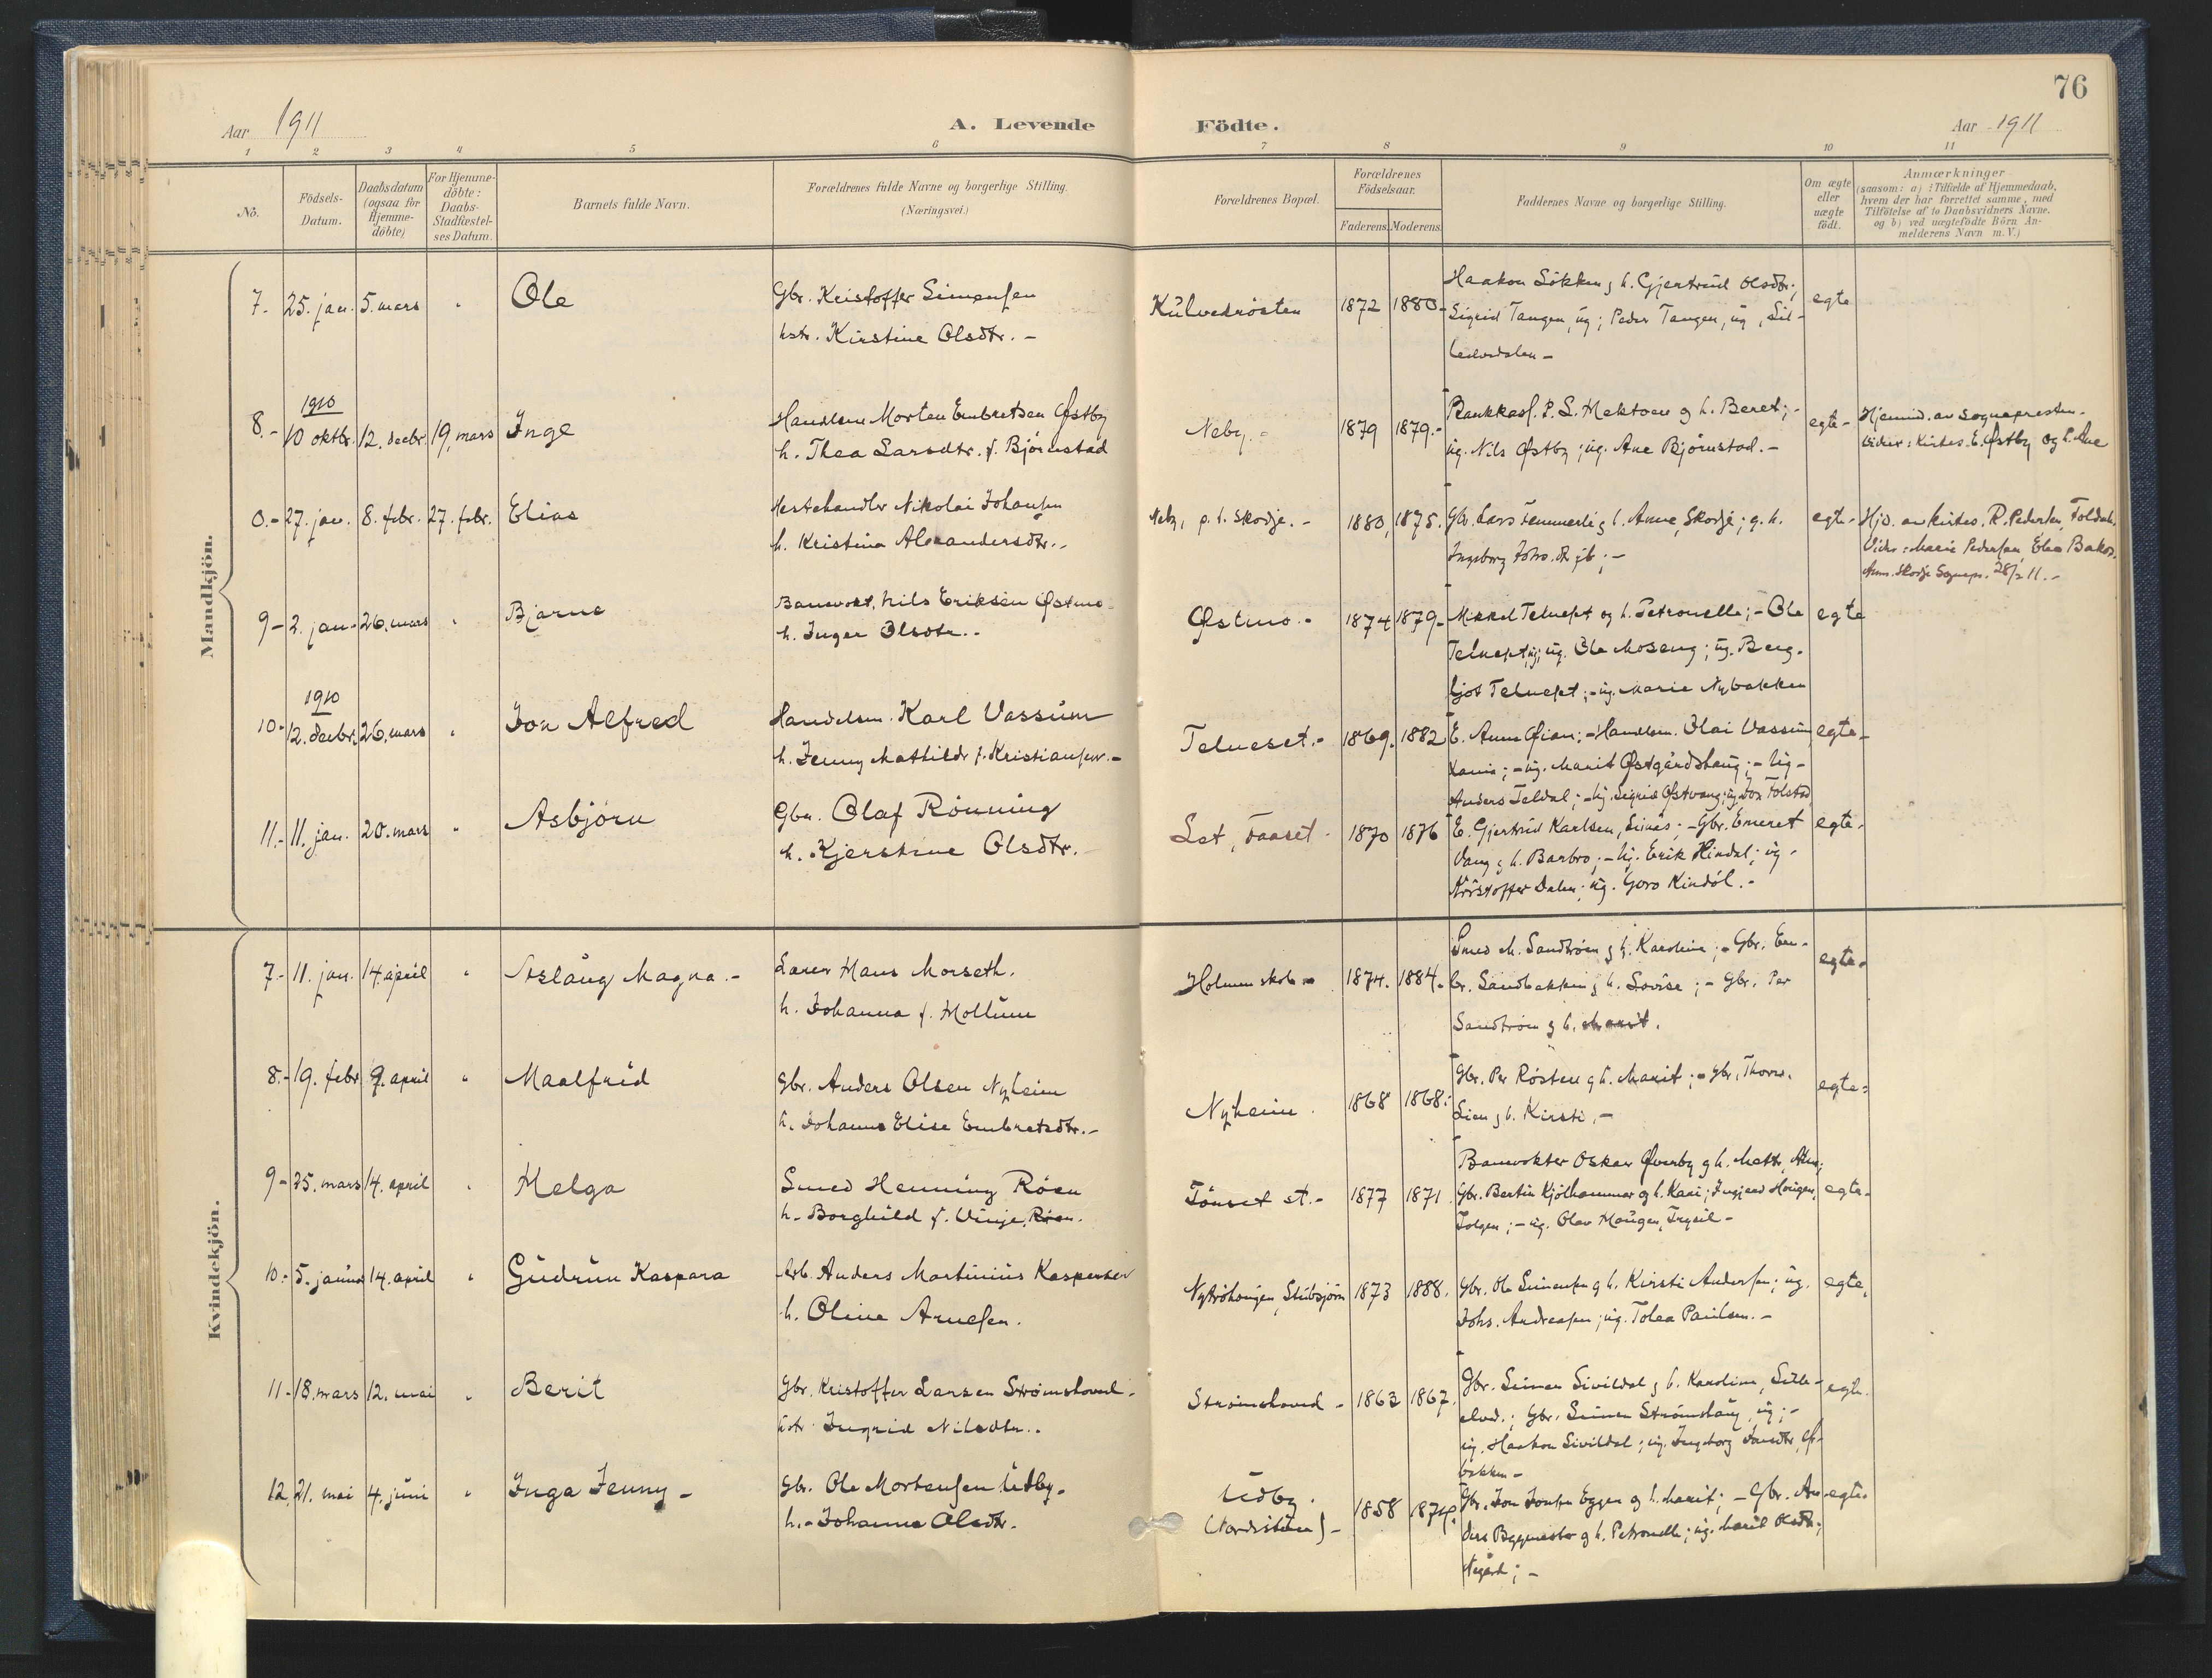 76
Aar 1911
A. Levende Födte.
Aar 1911
1 2 3 4 5 6 7 8 9 10 11
No.
Födsels-Datum.
Daabsdatum (ogsaa for Hjemme-döbte)
For Hjemme-döbte: Daabs-Stadfæstel-ses Datum.
Barnets fulde Navn.
Forældrenes fulde Navne og borgerlige Stilling.
(Næringsvei.)
Forældrenes Bopæl.
Forældrenes Födselsaar.
Faderens. Moderens.
Faddernes Navne og borgerlige Stilling.
Om ægte eller uægte födt.
Anmærkninger
(saasom: a) i Tilfælde af Hjemmedaab,
hvem der har forrettet samme, med
Tilföielse af to Daabsvidners Navne.
og b) ved uægtefödte Börn An-
melderens Navn m. V.)
Mandkjön.
7. 25. jan. 5. mars " Ole
Gbr. Kristoffer Simensen
hstr. Kirstine Olsdtr. -
Kulvedrösten 1872 1880
Haakon Lökken g h. Gjertrud Olsdtr.;
Sigrid Tangen, ug; Peder Tangen, ug,
egte
1910
8.- 10 oktbr. 12. decbr. 19. mars Inge
Handlsm Morten Embretsen Østby
h. Thea Larsdtr. f. Björnstad
Neby. 1879 1879.-
Bankkass. P. L. Mektoen g h. Beret;-
ug. Nils Østby; ug. Ane Björnstad.-
egte-
Hjemmed. av sognepresten.
vidner: Kirkes. E. Østby og h. Ane
0.- 27. jan. 8. febr. 27. febr. Elias
Hestehandler Nikolai Johansen
h. Kristina Alexandersdtr.-
Neby, p. t. Skodje. - 1880, 1875.
h. Anne, Skodje; g. h.
Ingeborg
egte-
Hjd. av kirkes. R. Pedersen, Foldal.
Vidner: Marie Pedersen, Elea Bakos.
Anm. Skodje Sognepr. 28/2 11.-
9- 2. jan- 26. mars " Bjarne
Banevokt. Nils Eriksen Østmo
h. Inger Olsdtr..
Østmo.- 1874 1879-
Mikkel Telneset og h. Petronelle;- Ole
Telneset, ug; ug. Ole Moseng; ug. Berg-
ljot Telneset;- ug. Marie Nybakken
egte
1910
10- 12. decbr. 26. mars " Jon Alfred
Handelsm. Karl Vassum
h. Jenny Mathilde f. Kristiansen.-
Telneset.- 1869. 1882
E. Anne Øian;- Handlsm. Olai Vassum
Kania;- ug. Marit Østgårdshaug;- Ug-
Anders Teldal;- Ug. Sigrid Østvang; ug. Jon Tolstad
egte-
11.- 11. jan. 20. mars " Asbjörn
Gbr. Olaf Rönning
h. Kjerstine Olsdtr.
Let, Faaset. 1870 1876
E. Gjertrud Karlsen,- Gbr. Emeret
Vang g h. Barbro;- Ug. Erik Hindal; ug-
Kristoffer Dalen; ug. Goro Kindöl.-
egte.
Kvindekjön.
7- 11. jan. 14. april " Aslaug Magna.-
Lærer Hans Morseth.
h. Johanna f. Mollum
Holmen skole 1874. 1884.
Smed M. Sandtröen g h. Karoline;- Gbr. Em-
br. Sandbakken g h. Lovise;- Gbr. Per
Sandtröen g h. Marit.
egte-
8.- 19. febr. 9. april " Maalfrid
Gbr. Anders Olsen Nyheim
h. Johanne Elise Embretsdtr.-
Nyheim. 1868 1868.
Gbr. Per Rösten g h. Marit;- Gbr. Thorv.
Lien g h. Kirsti.-
egte-
9- 25. mars 14. april " Helga
Smed Henning Röen
h. Borghild f. Vinje, Röen.
Tönset st.- 1877 1871.
Banevokter Oskar Øverby g h. Mette,
Gbr. Bertin Kjölhammar og h. Kari; Ingjerd Hougen,
Tolgen;- ug. Olav Haugen, Trysil-
egte-
10.- 5. januar 14. april " Gudrun Kaspara
Arb. Anders Martinius Kaspersen
h. Oline Arnesen.
Nytröhaugen, Stubsjöen 1873 1888.
Gbr. Ole Simensen g h. Kirsti Andersen; ug.
Johs. Andreasen; ug. Tolea Paulsen.-
egte,
11- 18. mars 12. mai " Berit
Gbr. Kristoffer Larsen Strömshoved.
hstr Ingrid Nilsdtr..
Strömshoved- 1863 1867.
Gbr. Simen Sivildal g h. Karoline,
Gbr. Simen Strömshaug, ug;-
ug. Haakon Sivildal; ug. Ingeborg
bakken-
egte.
12. 21. mai 4. juni " Inga Jenny-
Gbr. Ole Mortensen Udby.
h.- Johanne Olsdtr.
Udby.
(Nordistuen)- 1858 1874.
Gbr. Jon Jonsen Eggen og h. Marit;- Gbr. An-
ders Byggmester g h. Petronelle; ug. Marit Olsdtr.;
Nygård;-
egte.